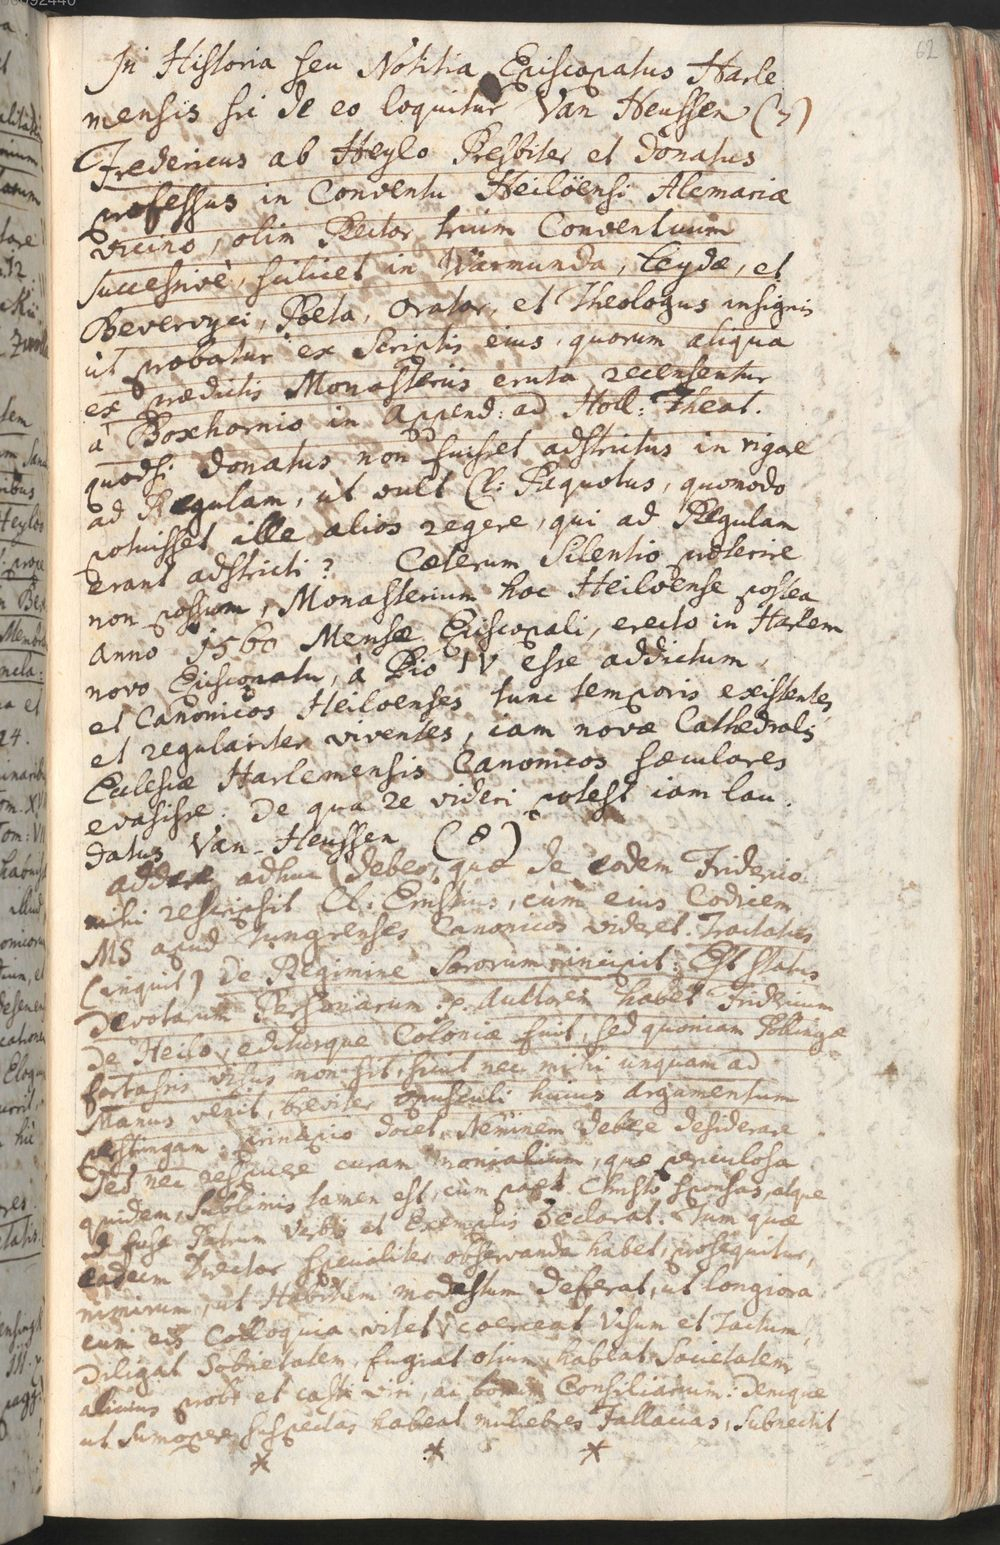 62
In Historia seu Notitia Episcopatus Harle
mensis sic de eo loquitur Van Heussen (7)
Fredericus ab Heylo Presbiter et donatus
professus in Conventu Heilöensi Alcmariæ
vicino, olim Rector trium Conventuum
successivè, scilicet in Warmunda, Leydæ, et
Bevervyci, Poeta, Orator, et Theologus insignis
ut probatur ex Scriptis eius, quorum aliqua
ex prædictis Monasteriis eruta recensentur
à Boxhornio in Append: ad Holl: Theat.
quodsi donatus non fuisset adstrictus in rigore
ad Regulam, ut vult Cl: Paquotus, quomodo
potuisset ille alios regere, qui ad Regulam
erant adstricti? Cæterum Silentio præterire
non possum, Monasterium hoc Heiloense postea
anno 1560 Mensæ Episcopali, erecto in Harlem
novo Episcopatu, à Pio IV esse addictum,
et Canonicos Heiloenses tunc temporis existentes,
et regulariter viventes, iam novæ Cathedralis
Ecclesiæ Harlemensis Canonicos sæculares
evasisse. De qua re videri potest iam lau.
datus Van-Heussen (8)
addere adhuc debeo, quæ de eodem Friderico
mihi rescripsit Cl: Ernstius, cum eius Codicem
MS apud Tungrenses Canonicos videret. Tractatus
(inquit) De Regimine Sororum incipit: Est status
devotarum Personarum &. Auctorem habet Fridericum
de Heilo, editusque Coloniæ fuit, sed quoniam Pollingæ
fortassis visus non sit, sicut nec mihi unquam ad
Manus venit, breviter opusculi huius argumentum
perstringam. Principio docet, Neminem debere desiderare
sed nec respuere curam monialium, quæ periculosa
quidem, sublimis tamen est, cum paret Christo sponsas, atque
id fuse Patrum verbis et Exemplis declarat. Tum quæ
eadem Director specialiter observanda habet, prosequitur,
nimirum, ut Habitum modestum deferat, ut longiora
cum eis Colloquia vitet, coerceat Visum et Tactum,
diligat Sobrietatem, fugiat otium, habeat Societatem
alicuius probi et casti viri, ac bonum Consiliarium: denique
ut summopere suspectas habeat muliebres Fallacias, Subnectit
* * *